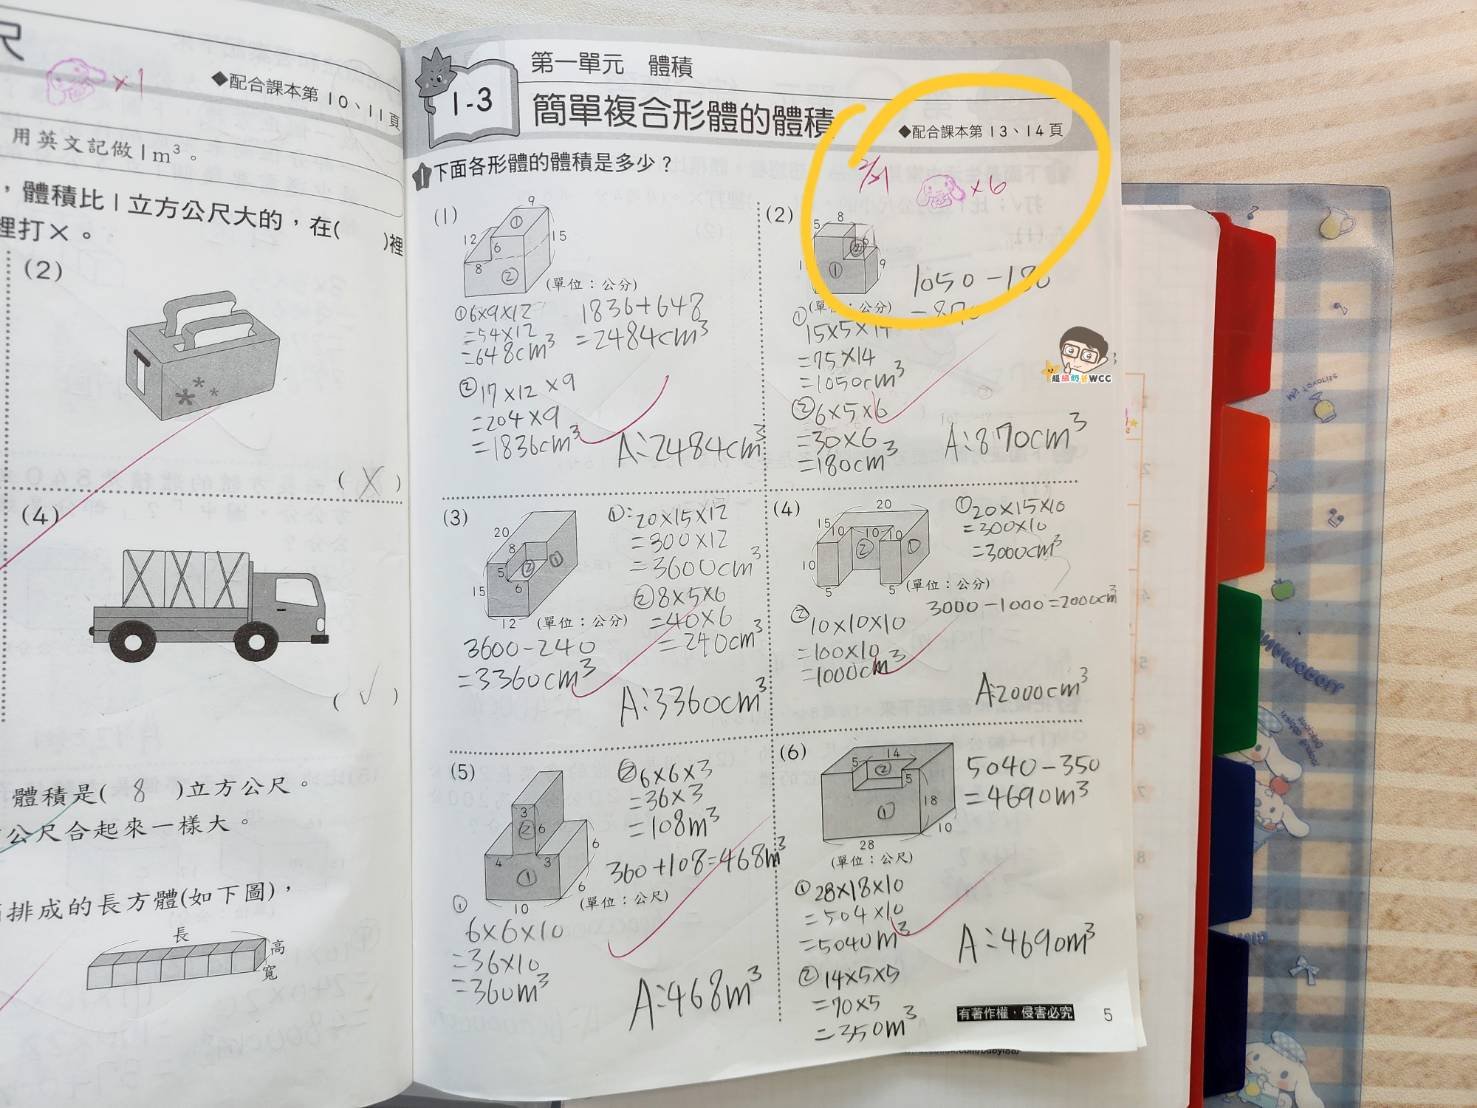 尺
×1
◆配合課本第10、11頁
用英文記做1m³。
，體積比1立方公尺大的，在(　)裡
裡打×。
(2)
(×)
(4)
(✓)
體積是( 8 )立方公尺。
公尺合起來一樣大。
排成的長方體(如下圖)，
長
高
寬
1-3
第一單元 體積
簡單複合形體的體積
◆配合課本第13、14頁
×6
1 下面各形體的體積是多少？
(1)
9
12
6
15
8
①
②
(單位：公分)
①6×9×12
=54×12
=648cm³
②17×12×9
=204×9
=1836cm³
1836+648
=2484cm³
A:2484cm³
(2)
5
8
9
①
(單位：公分)
①15×5×14
=75×14
=1050cm³
②6×5×6
=30×6
=180cm³
1050-180
=870
A:870cm³
超級奶爸WCC
(3)
20
8
5
6
15
12
②
①
(單位：公分)
①:20×15×12
=300×12
=3600cm³
②8×5×6
=40×6
=240cm³
3600-240
=3360cm³
A:3360cm³
(4)
20
15
10
10
10
10
5
5
②
①
(單位：公分)
①20×15×10
=300×10
=3000cm³
②10×10×10
=100×10
=1000cm³
3000-1000=2000cm³
A:2000cm³
(5)
3
②
6
4
3
6
①
6
10
(單位：公尺)
①
6×6×10
=36×10
=360m³
②6×6×3
=36×3
=108m³
360+108=468m³
A:468m³
(6)
14
5
②
5
①
18
10
28
(單位：公尺)
①28×18×10
=504×10
=5040m³
②14×5×5
=70×5
=350m³
5040-350
=4690m³
A:4690m³
有著作權·侵害必究
5